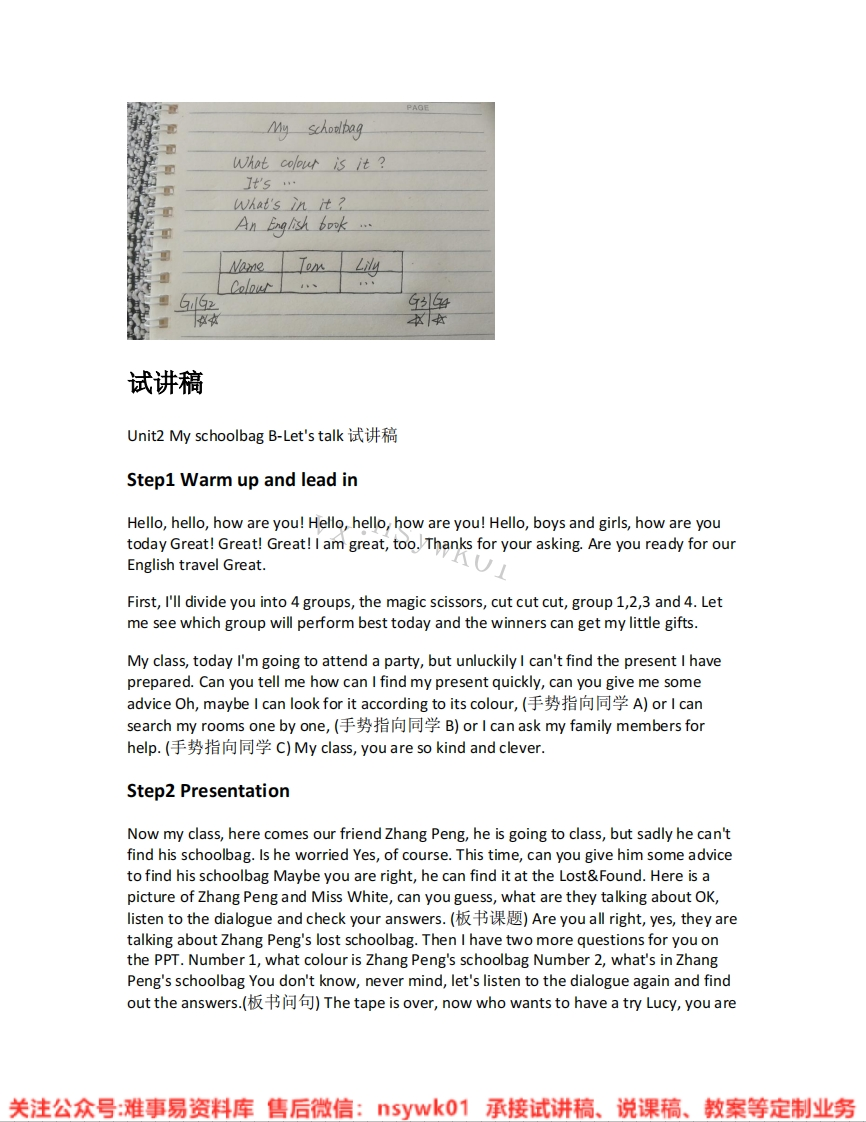 PAGE
My schoolbag
What colour is it?
It's ...
What's in it?
An English book ...
Name Tom Lily
Colour ... ...
G1 G2 G3 G4
试讲稿
Unit2 My schoolbag B-Let's talk 试讲稿
Step1 Warm up and lead in
Hello, hello, how are you! Hello, hello, how are you! Hello, boys and girls, how are you
today Great! Great! Great! I am great, too. Thanks for your asking. Are you ready for our
English travel Great.
vx:nsywk01
First, I'll divide you into 4 groups, the magic scissors, cut cut cut, group 1,2,3 and 4. Let
me see which group will perform best today and the winners can get my little gifts.
My class, today I'm going to attend a party, but unluckily I can't find the present I have
prepared. Can you tell me how can I find my present quickly, can you give me some
advice Oh, maybe I can look for it according to its colour, (手势指向同学 A) or I can
search my rooms one by one, (手势指向同学 B) or I can ask my family members for
help. (手势指向同学 C) My class, you are so kind and clever.
Step2 Presentation
Now my class, here comes our friend Zhang Peng, he is going to class, but sadly he can't
find his schoolbag. Is he worried Yes, of course. This time, can you give him some advice
to find his schoolbag Maybe you are right, he can find it at the Lost&Found. Here is a
picture of Zhang Peng and Miss White, can you guess, what are they talking about OK,
listen to the dialogue and check your answers. (板书课题) Are you all right, yes, they are
talking about Zhang Peng's lost schoolbag. Then I have two more questions for you on
the PPT. Number 1, what colour is Zhang Peng's schoolbag Number 2, what's in Zhang
Peng's schoolbag You don't know, never mind, let's listen to the dialogue again and find
out the answers.(板书问句) The tape is over, now who wants to have a try Lucy, you are
关注公众号:难事易资料库 售后微信：nsywk01 承接试讲稿、说课稿、教案等定制业务